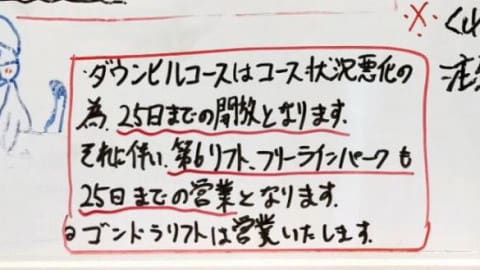 ・ダウンヒルコースはコース状況悪化の
為、25日までの開放となります。
それに伴い、第6リフト、フリーラインパークも
25日までの営業となります。
ゴンドラリフトは営業いたします。
※